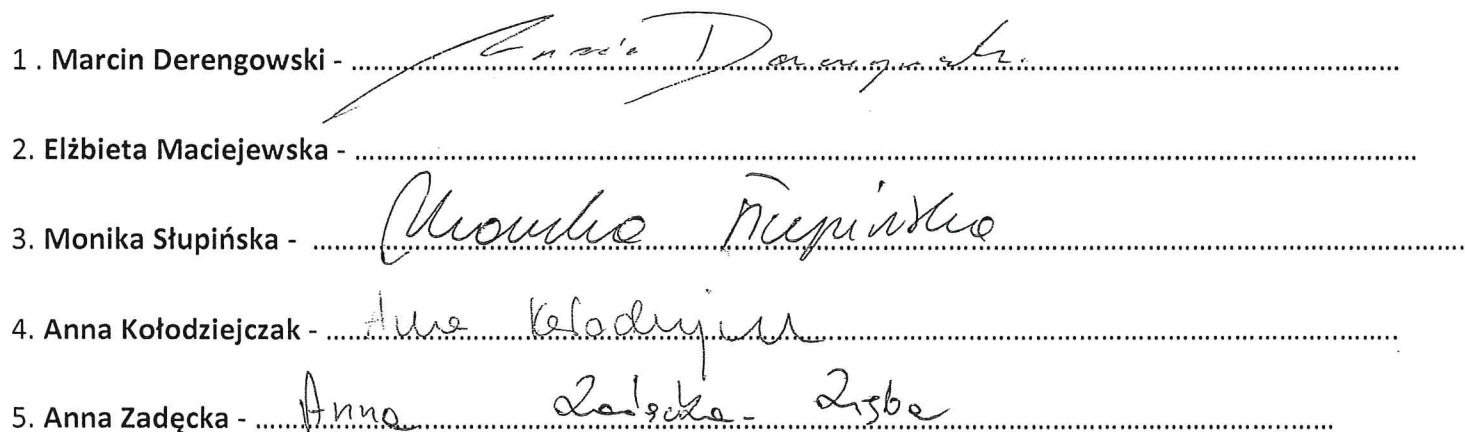 1 . Marcin Derengowski - Marcin Derengowski
2. Elżbieta Maciejewska -
3. Monika Słupińska - Monika Słupińska
4. Anna Kołodziejczak - Anna Kołodziejczak
5. Anna Zadęcka - Anna Zadęcka - Zięba